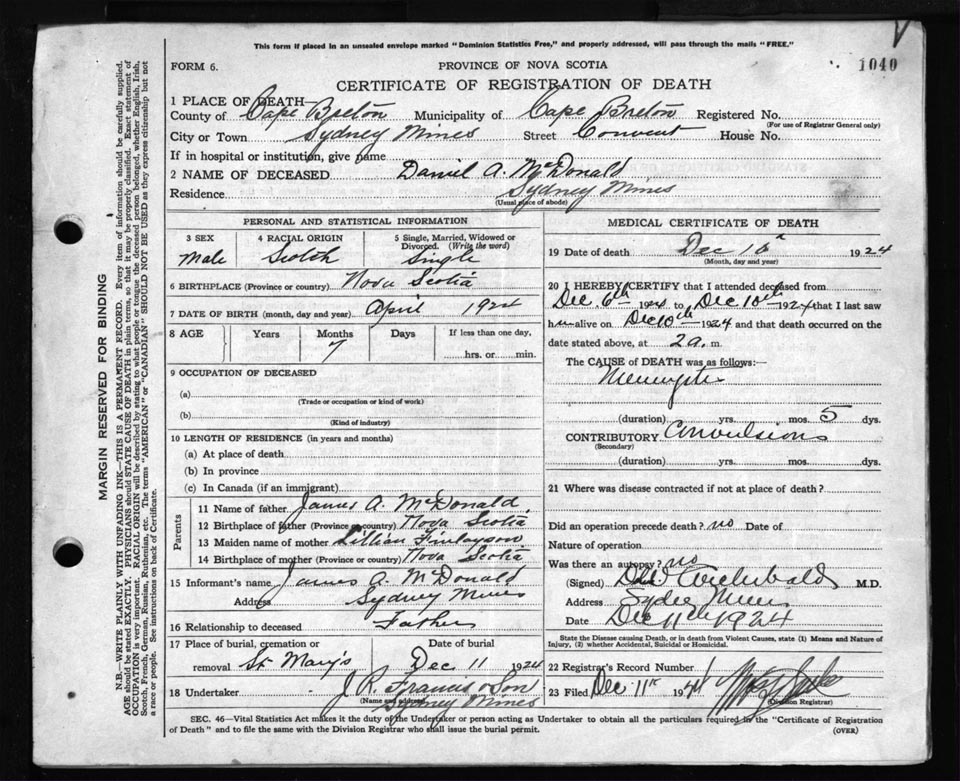 This form if placed in an unsealed envelope marked "Dominion Statistics Free," and properly addressed, will pass through the mails "FREE."
FORM 6.
PROVINCE OF NOVA SCOTIA
1040
CERTIFICATE OF REGISTRATION OF DEATH
1 PLACE OF DEATH
County of Cape Breton Municipality of Cape Breton Registered No.
(For use of Registrar General only)
City or Town Sydney Mines Street Convent House No.
If in hospital or institution, give name
2 NAME OF DECEASED Daniel A. McDonald
Residence Sydney Mines
(Usual place of abode)
PERSONAL AND STATISTICAL INFORMATION
3 SEX 4 RACIAL ORIGIN 5 Single, Married, Widowed or Divorced. (Write the word)
Male Scotch Single
6 BIRTHPLACE (Province or country) Nova Scotia
7 DATE OF BIRTH (month, day and year) April 1924
8 AGE Years Months Days If less than one day,
7 hrs. or min.
9 OCCUPATION OF DECEASED
(a)
(Trade or occupation or kind of work)
(b)
(Kind of industry)
10 LENGTH OF RESIDENCE (in years and months)
(a) At place of death
(b) In province
(c) In Canada (if an immigrant)
Parents
11 Name of father James A. McDonald
12 Birthplace of father (Province or country) Nova Scotia
13 Maiden name of mother Lillian Finlayson
14 Birthplace of mother (Province or Country) Nova Scotia
15 Informant's name James A. McDonald
Address Sydney Mines
16 Relationship to deceased Father
17 Place of burial, cremation or removal St. Mary's
Date of burial Dec 11 1924
18 Undertaker J. R. Francis & Son
(Name and address)
Sydney Mines
MEDICAL CERTIFICATE OF DEATH
19 Date of death Dec 1924
(Month, day and year)
20 I HEREBY CERTIFY that I attended deceased from
Dec. 6th 1924 to Dec 10th 1924 that I last saw
him alive on Dec 10th 1924 and that death occurred on the
date stated above, at 2 a. m.
The CAUSE of DEATH was as follows:—
(duration) yrs. mos. 5 dys.
CONTRIBUTORY Convulsions
(Secondary)
(duration) yrs. mos. dys.
21 Where was disease contracted if not at place of death?
Did an operation precede death? no Date of
Nature of operation
Was there an autopsy? no
(Signed) Archibald M.D.
Address Sydney Mines
Date Dec 11th 1924
State the Disease causing Death, or in death from Violent Causes, state (1) Means and Nature of Injury, (2) whether Accidental, Suicidal or Homicidal.
22 Registrar's Record Number 1
23 Filed Dec 11th 1924
(Division Registrar)
SEC. 46—Vital Statistics Act makes it the duty of the Undertaker or person acting as Undertaker to obtain all the particulars required in the "Certificate of Registration
of Death" and to file the same with the Division Registrar who shall issue the burial permit.
(OVER)
MARGIN RESERVED FOR BINDING
N.B.—WRITE PLAINLY WITH UNFADING INK—THIS IS A PERMANENT RECORD. Every item of information should be carefully supplied.
AGE should be stated EXACTLY. PHYSICIANS should STATE CAUSE OF DEATH in plain terms, so that it may be properly classified. Exact statement of
OCCUPATION is very important. RACIAL ORIGIN will be described by stating to what people or tongue the deceased person belonged, whether English, Irish,
Scotch, French, German, Russian, Ruthenian, etc. The terms "AMERICAN" or "CANADIAN" SHOULD NOT BE USED as they express citizenship but not
a race or people. See instructions on back of Certificate.